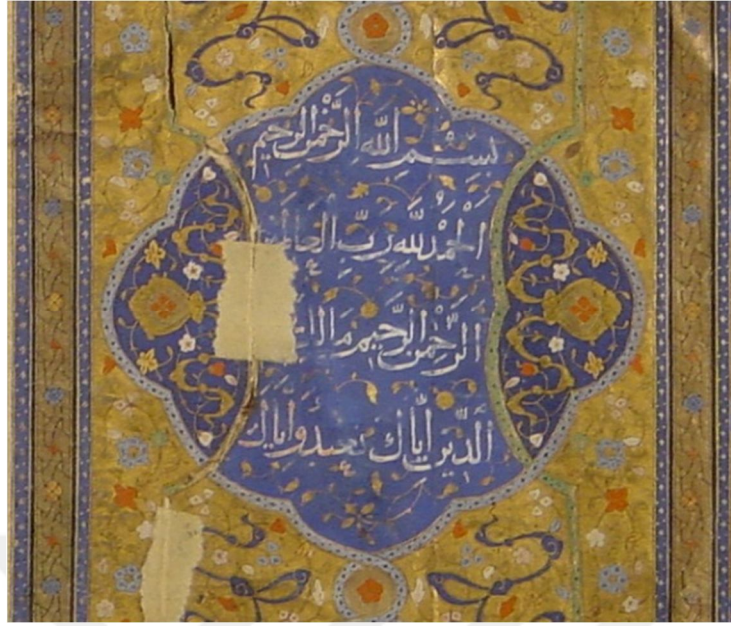 بسم الله الرحمن الرحيم
الحمد لله رب العالمين
الرحمن الرحيم مالك
الدين اياك نعبد واياك